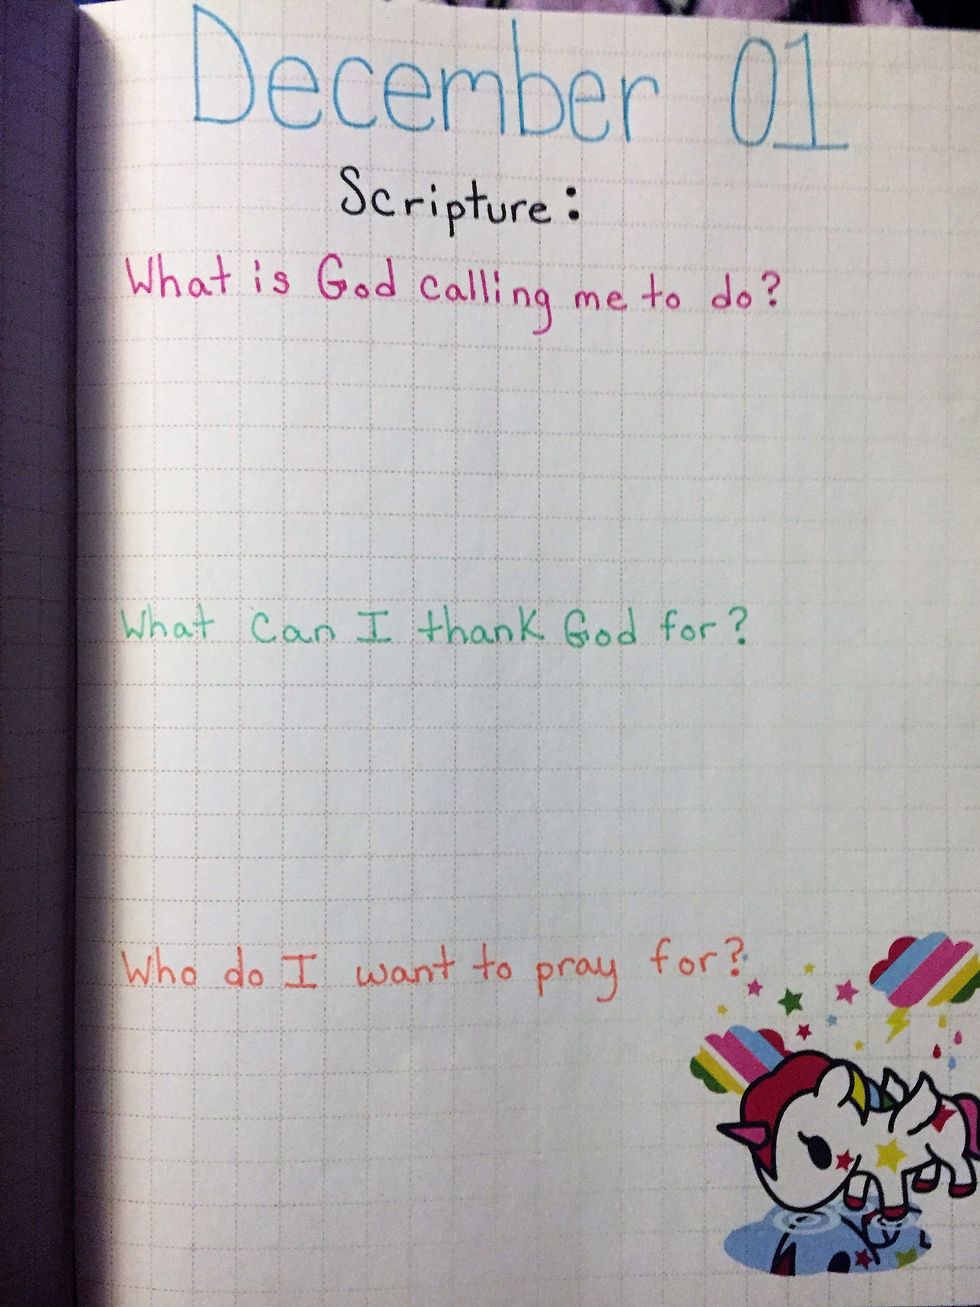 December 01
Scripture:
What is God calling me to do?
What can I thank God for?
Who do I want to pray for?